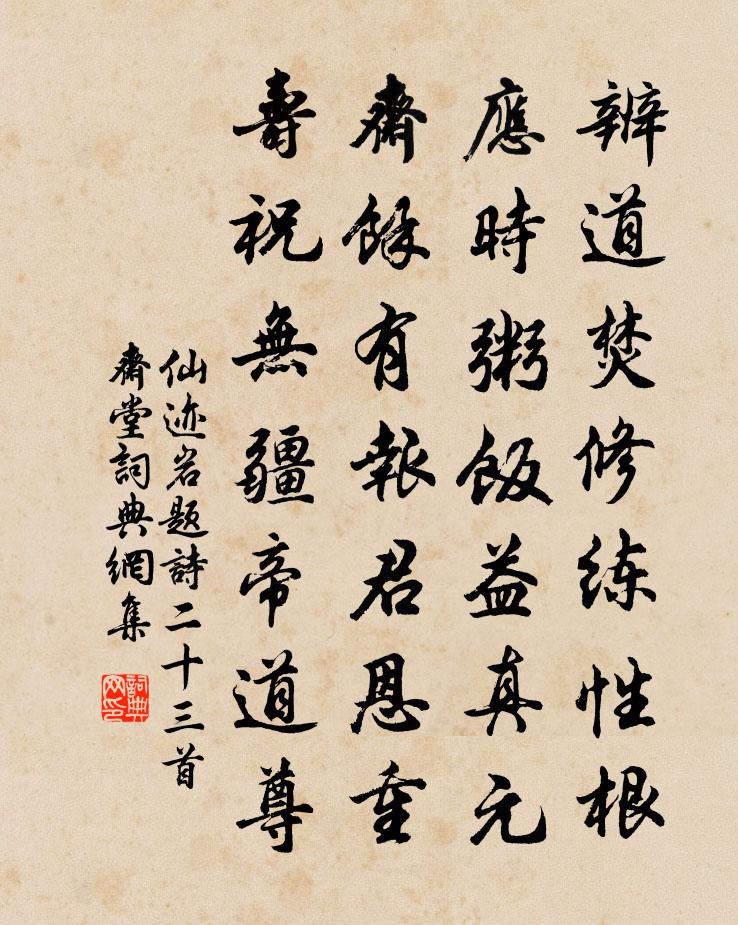 辦道焚修练性根
應時粥飯益真元
齋餘有報君恩重
壽祝無疆帝道尊
仙迹岩题詩二十三首
齋堂詞典網集
詞典网印